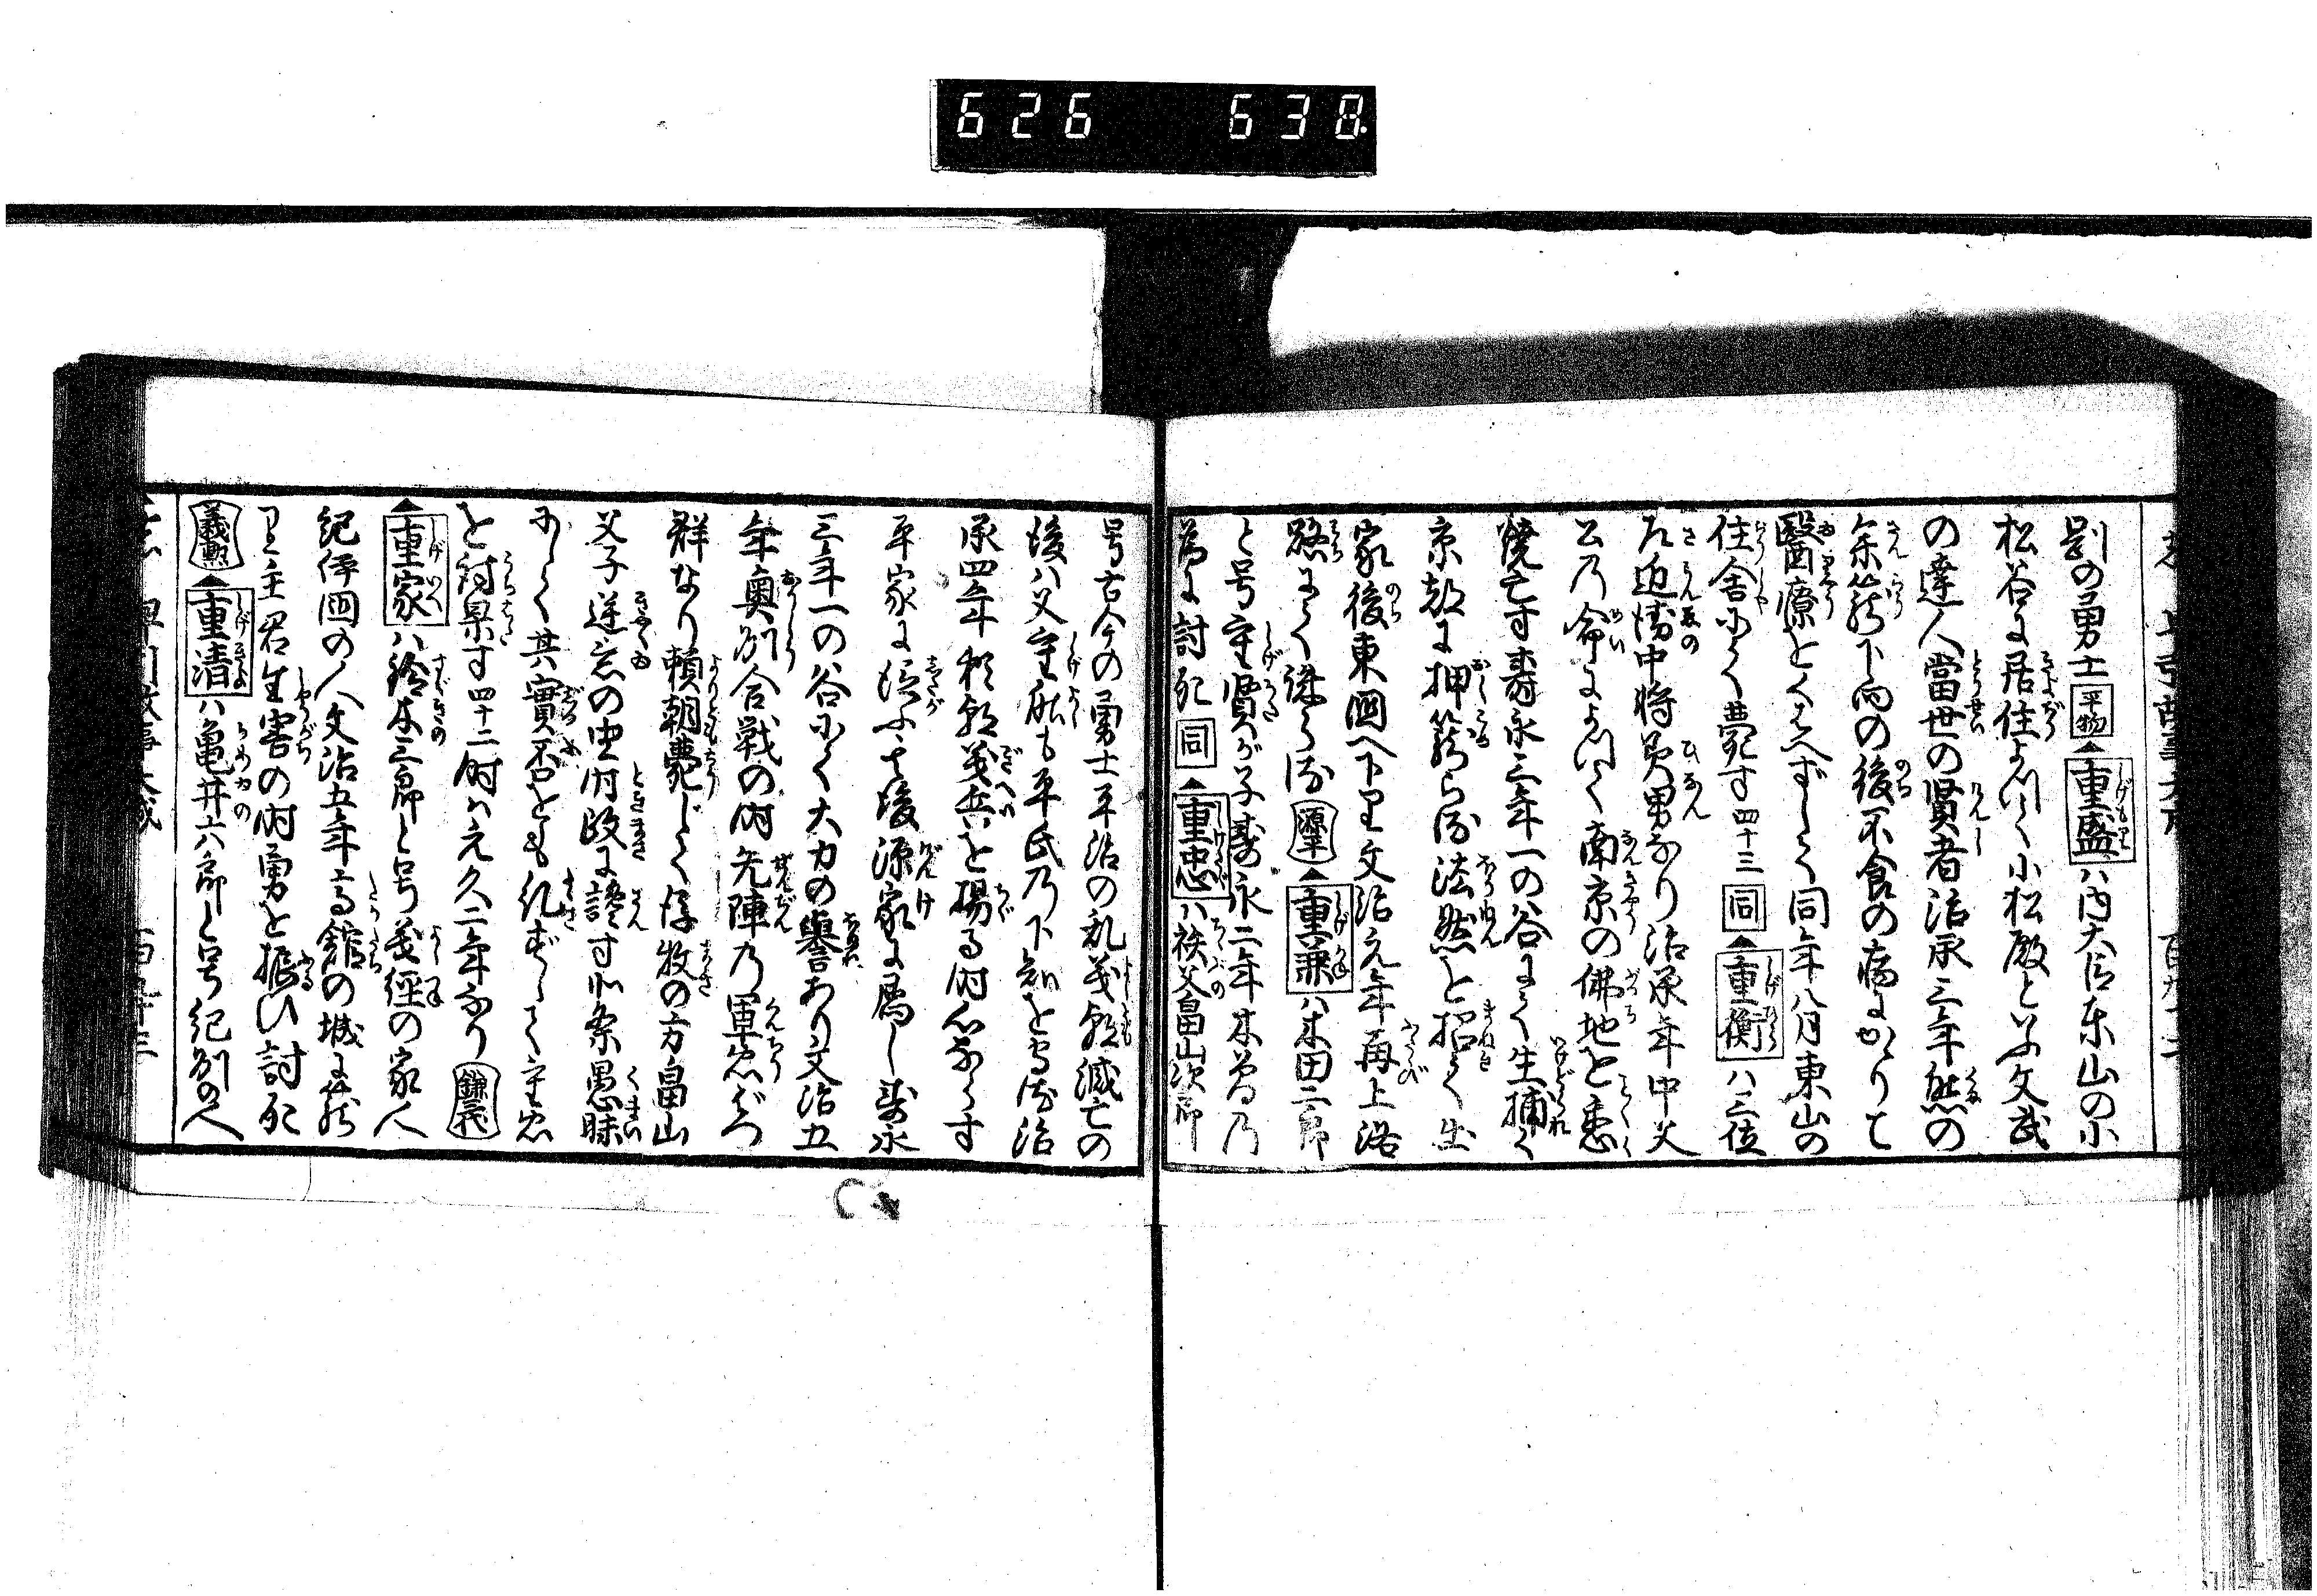 626 638
尉の勇士 平物 重盛ハ内大臣東山の小
松谷に居住よつて小松殿といふ文武
の達人當世の賢者治承三年熊の
参籠下向の後不食の病にかゝりて
醫療をくはへずして同年八月東山の
住舎にて薨す四十三 同 重衡ハ三位
左近衛中将美男なり治承年中父
公乃命によつて南京の佛地を悉く
焼亡す壽永三年一の谷にて生捕て
京都に押籠らる法然を招て出
家後東國へ下り文治元年再上洛
路にて誅らる 源平 重兼ハ木田二郎
と号重賢が子壽永二年木曽乃
為に討死 同 重忠ハ秩父畠山次郎
号古今の勇士平治の乱義朝滅亡の
後ハ父重能も平氏乃下知を守る治
承四年頼朝義兵を揚る時心ならす
平家に従ふ其後源家に属し壽永
三年一の谷にて大力の譽あり文治五
年奥州合戦の時先陣乃軍忠ばつ
群なり頼朝薨じて後牧の方畠山
父子逆意の由時政に讒す北条愚昧
にして其實否をも糺さずして重忠
を討果す四十二時ハ元久二年なり 鎌代
重家ハ鈴木三郎と号義經の家人
紀伊國の人文治五年高館の城に籠
り主君生害の時勇を振ひ討死
義勲 重清ハ亀井六郎と号紀州の人